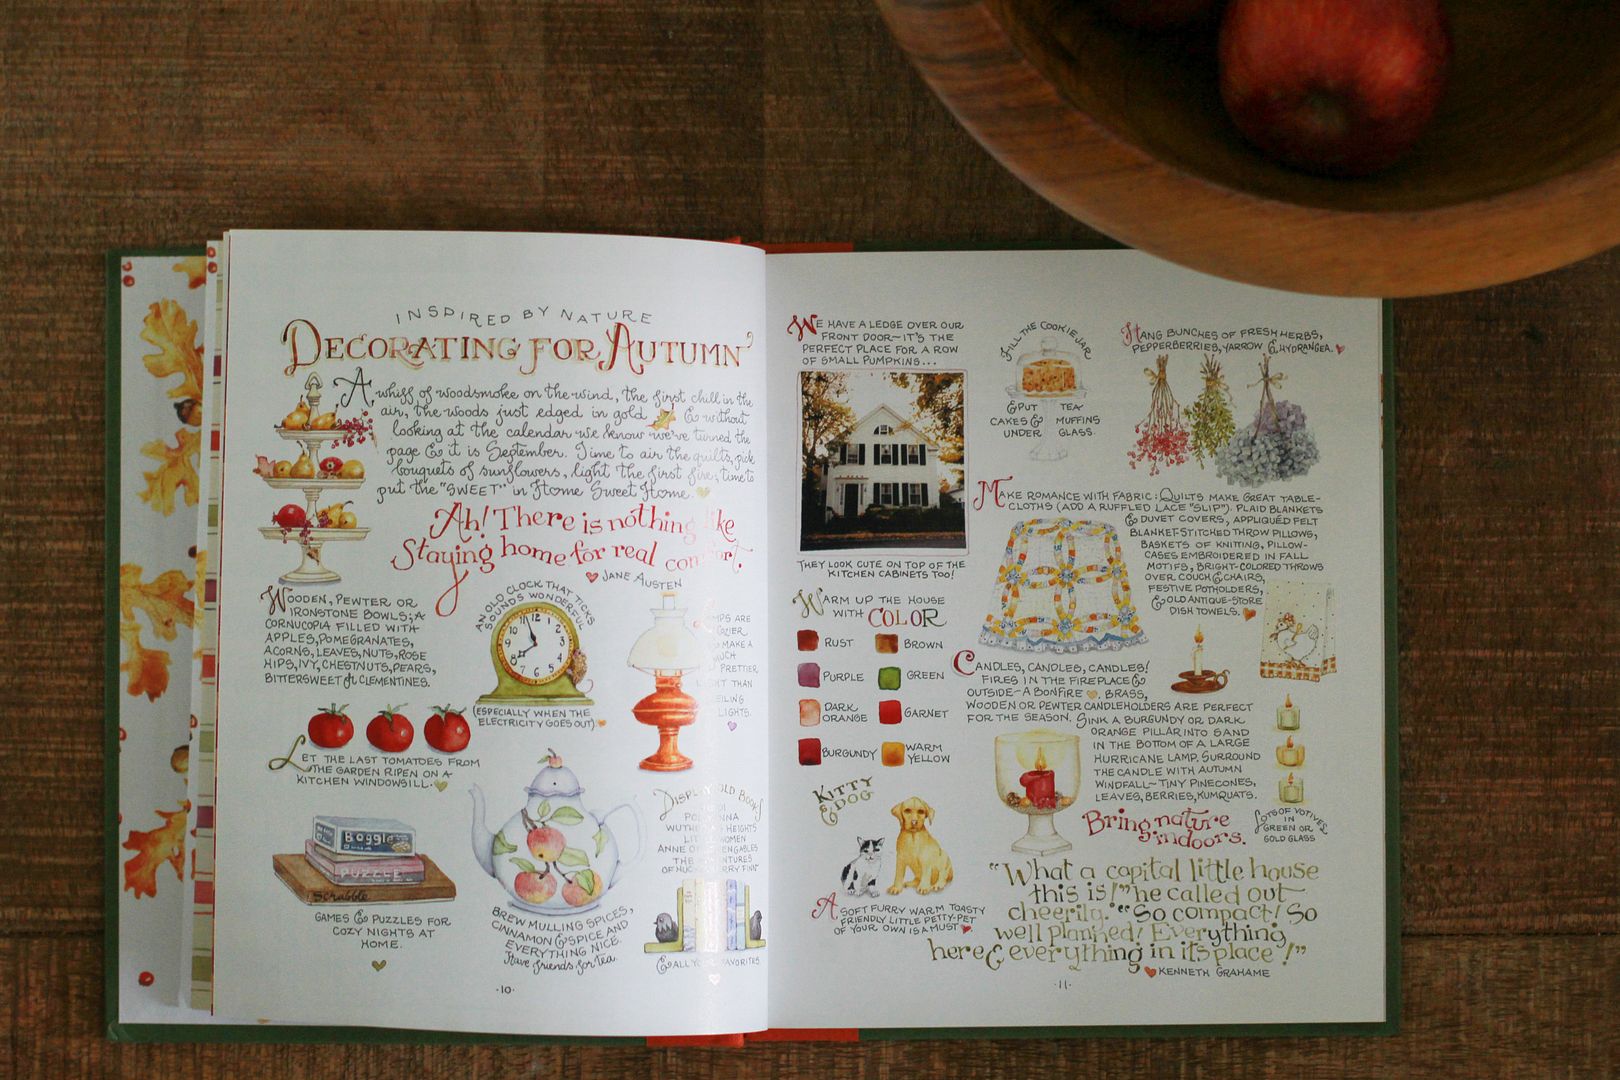 INSPIRED BY NATURE
DECORATING FOR AUTUMN
A whiff of woodsmoke on the wind, the first chill in the
air, the woods just edged in gold & without
looking at the calendar we know we've turned the
page & it is September. Time to air the quilts, pick
bouquets of sunflowers, light the first fire, time to
put the "SWEET" in Home Sweet Home.
Ah! There is nothing like
Staying home for real comfort.
JANE AUSTEN
WOODEN, PEWTER OR
IRONSTONE BOWLS; A
CORNUCOPIA FILLED WITH
APPLES, POMEGRANATES,
ACORNS, LEAVES, NUTS, ROSE
HIPS, IVY, CHESTNUTS, PEARS,
BITTERSWEET or CLEMENTINES.
AN OLD CLOCK THAT TICKS
SOUNDS WONDERFUL
(ESPECIALLY WHEN THE
ELECTRICITY GOES OUT)
LAMPS ARE
MAKE A
MUCH
PRETTIER
LIGHT THAN
CEILING
LIGHTS.
LET THE LAST TOMATOES FROM
THE GARDEN RIPEN ON A
KITCHEN WINDOWSILL.
Boggle
PUZZLE
Scrabble
GAMES & PUZZLES FOR
COZY NIGHTS AT
HOME.
BREW MULLING SPICES,
CINNAMON & SPICE AND
EVERYTHING NICE.
Have friends for tea.
DISPLAY OLD BOOKS
WUTHERING HEIGHTS
LITTLE WOMEN
ANNE OF GREEN GABLES
THE ADVENTURES
OF HUCKLEBERRY FINN
& ALL YOUR FAVORITES.
·10·
WE HAVE A LEDGE OVER OUR
FRONT DOOR—IT'S THE
PERFECT PLACE FOR A ROW
OF SMALL PUMPKINS...
THEY LOOK CUTE ON TOP OF THE
KITCHEN CABINETS TOO!
FILL THE COOKIE JAR
& PUT TEA
CAKES & MUFFINS
UNDER GLASS.
HANG BUNCHES OF FRESH HERBS,
PEPPERBERRIES, YARROW & HYDRANGEA.
MAKE ROMANCE WITH FABRIC: QUILTS MAKE GREAT TABLE-
CLOTHS (ADD A RUFFLED LACE "SLIP"). PLAID BLANKETS
& DUVET COVERS, APPLIQUÉD FELT
BLANKET-STITCHED THROW PILLOWS,
BASKETS OF KNITTING, PILLOW-
CASES EMBROIDERED IN FALL
MOTIFS, BRIGHT-COLORED THROWS
OVER COUCH & CHAIRS,
FESTIVE POTHOLDERS,
& OLD ANTIQUE-STORE
DISH TOWELS.
WARM UP THE HOUSE
WITH COLOR
RUST
BROWN
PURPLE
GREEN
DARK
ORANGE
GARNET
BURGUNDY
WARM
YELLOW
CANDLES, CANDLES, CANDLES!
FIRES IN THE FIREPLACE &
OUTSIDE—A BONFIRE. BRASS,
WOODEN OR PEWTER CANDLEHOLDERS ARE PERFECT
FOR THE SEASON. SINK A BURGUNDY OR DARK
ORANGE PILLAR INTO SAND
IN THE BOTTOM OF A LARGE
HURRICANE LAMP. SURROUND
THE CANDLE WITH AUTUMN
WINDFALL—TINY PINECONES,
LEAVES, BERRIES, KUMQUATS.
Bring nature
indoors.
LOTS OF VOTIVES
IN
GREEN OR
GOLD GLASS
KITTY
& DOG
A SOFT FURRY WARM TOASTY
FRIENDLY LITTLE PETTY-PET
OF YOUR OWN IS A MUST
"What a capital little house
this is!" he called out
cheerily. "So compact! So
well planned! Everything
here & everything in its place!"
KENNETH GRAHAME
·11·